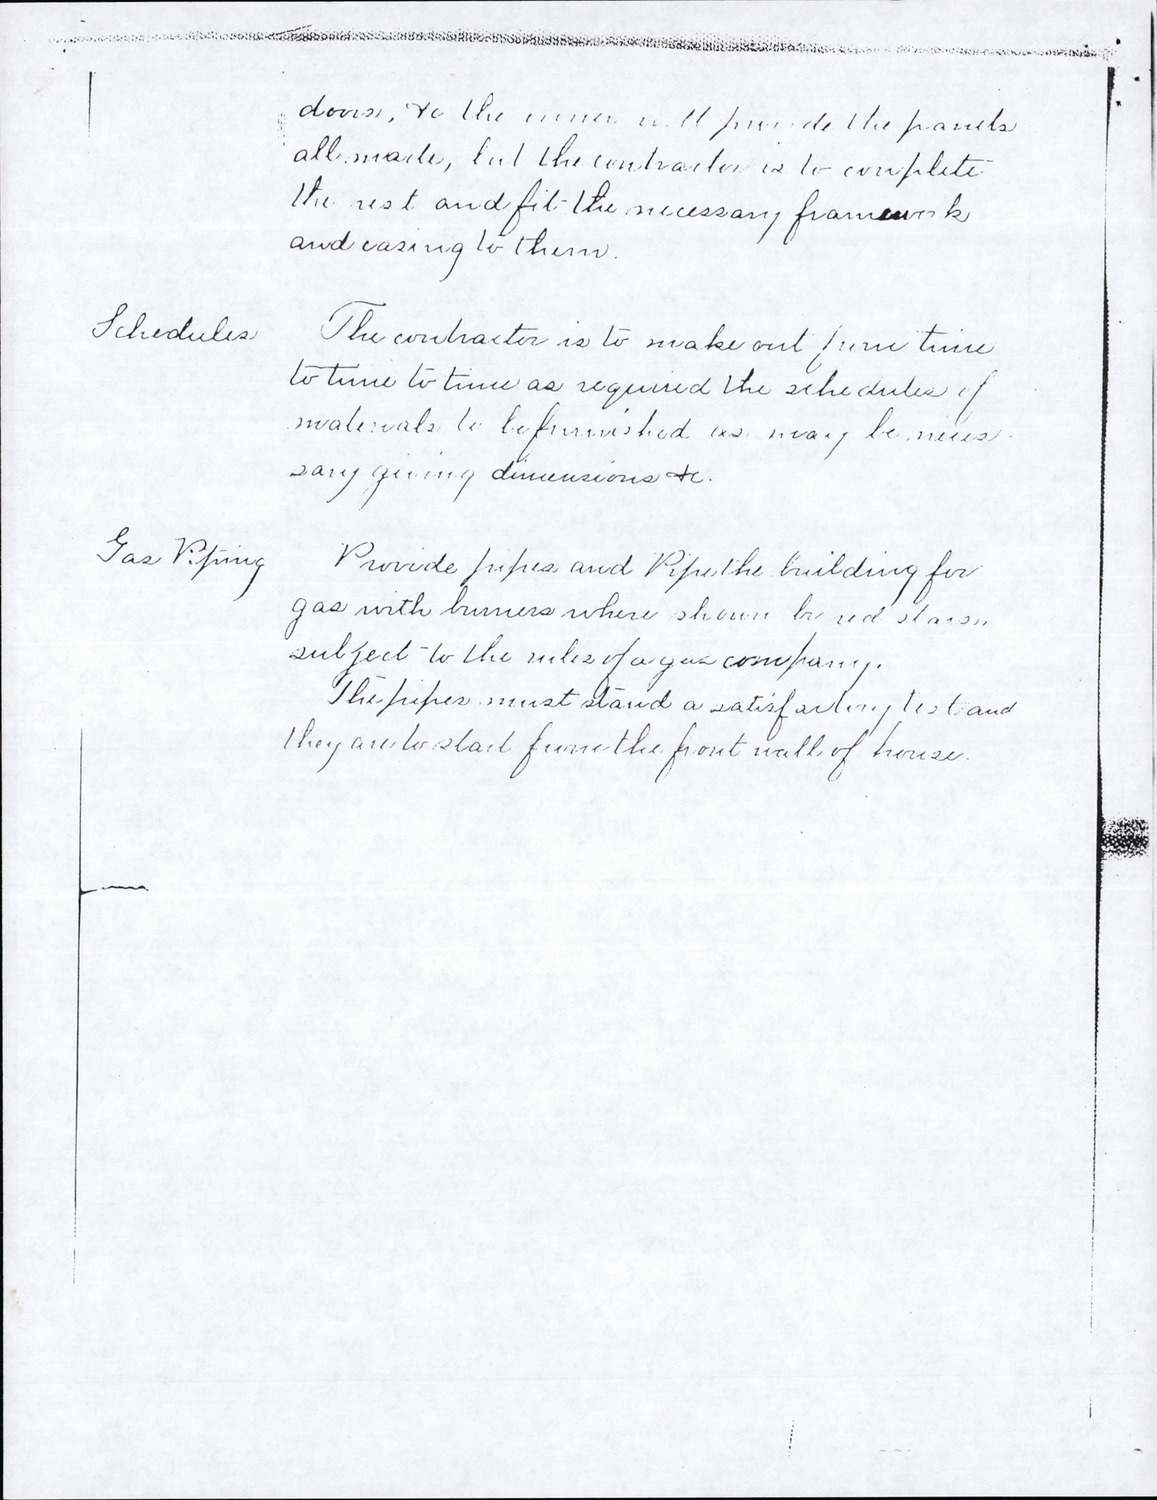 doors, &c the owner will provide the panels
all made, but the contractor is to complete
the rest and fit the necessary framework
and casing to them.
Schedules The contractor is to make out from time
to time to time as required the schedules of
materials to be furnished as may be neces-
sary giving dimensions &c.
Gas Piping Provide pipes and Pipe the building for
gas with burners where shown by red stars,
subject to the rules of a gas company.
The pipes must stand a satisfactory test and
they are to start from the front wall of house.